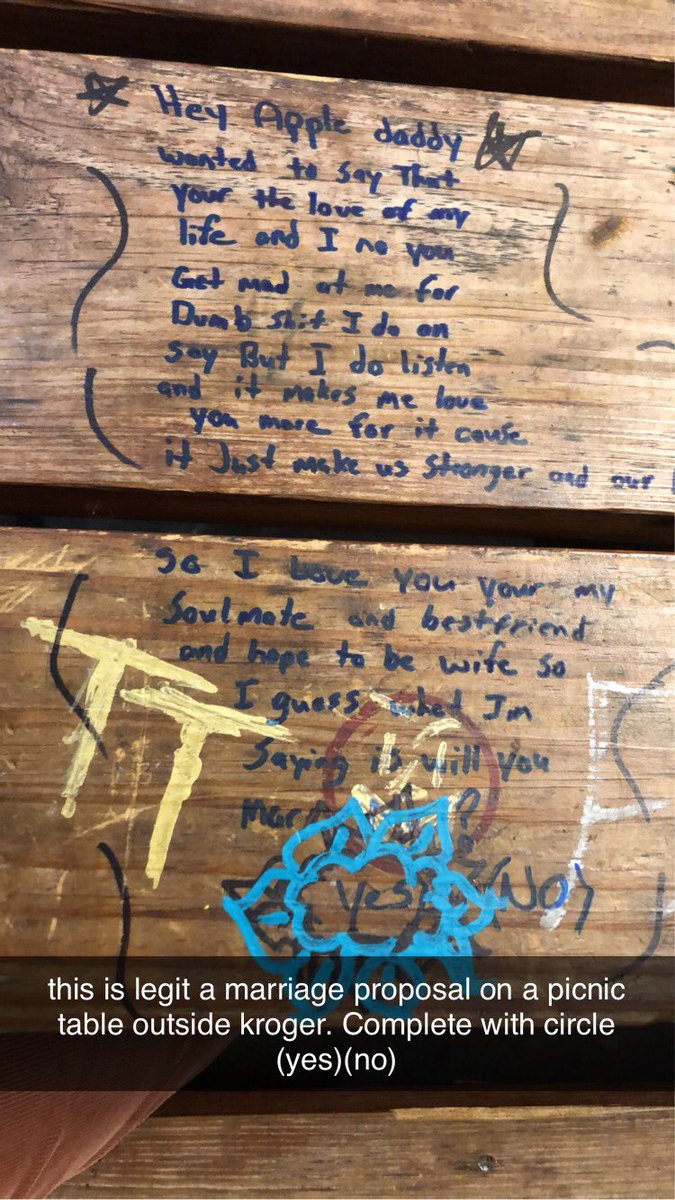 Hey Apple daddy
wanted to say That
your the love of my
life and I no you
Get mad at me for
Dumb shit I do an
say But I do listen
and it makes me love
you more for it cause
it Just make us stronger and our
So I Love you your my
Soulmate and bestfriend
and hope to be wife so
I guess what Im
Saying is will you
?
yes (No)
this is legit a marriage proposal on a picnic
table outside kroger. Complete with circle
(yes)(no)